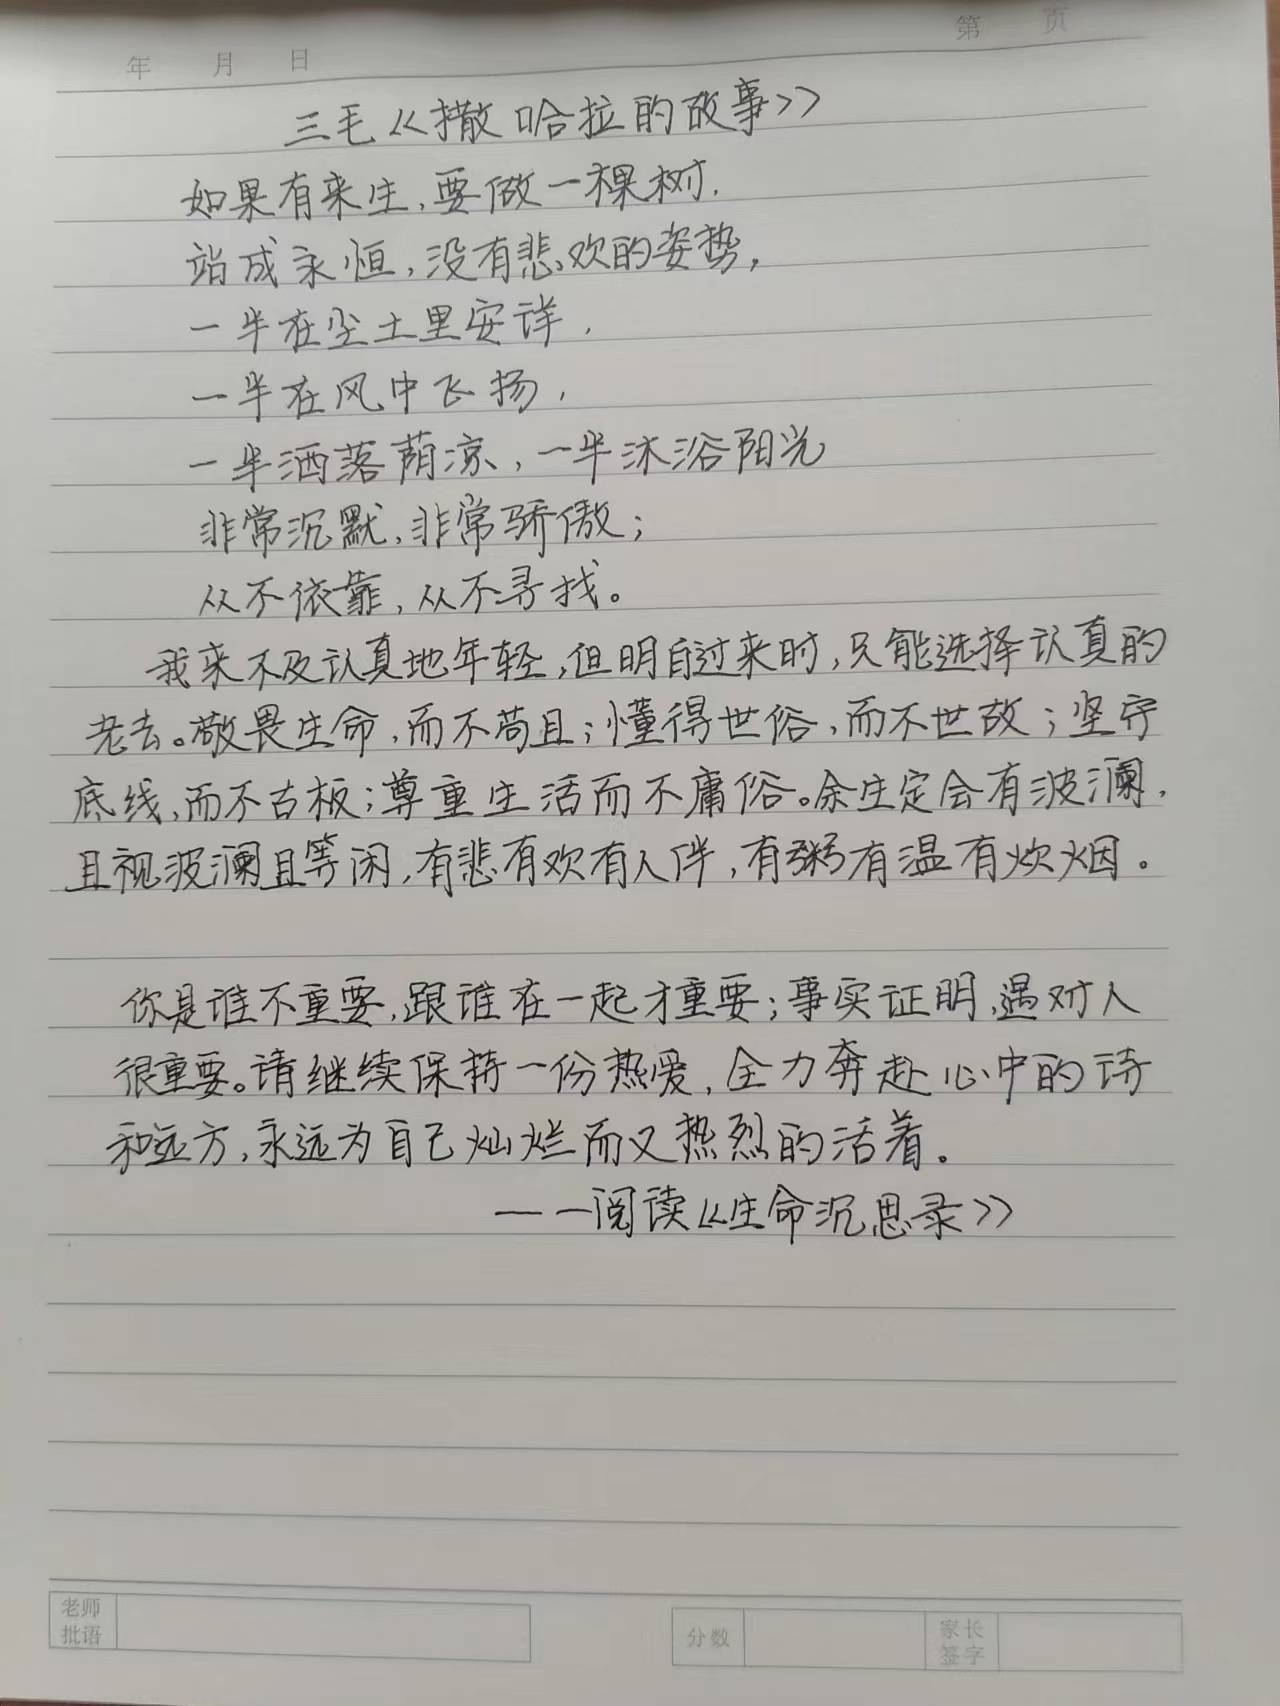 年 月 日 第 页
三毛《撒哈拉的故事》
如果有来生,要做一棵树.
站成永恒,没有悲欢的姿势,
一半在尘土里安详.
一半在风中飞扬.
一半洒落荫凉,一半沐浴阳光
非常沉默,非常骄傲;
从不依靠,从不寻找。
我来不及认真地年轻,但明白过来时,只能选择认真的
老去。敬畏生命,而不苟且;懂得世俗,而不世故;坚守
底线,而不古板;尊重生活而不庸俗。余生定会有波澜.
且视波澜且等闲,有悲有欢有人伴,有粥有温有炊烟。
你是谁不重要,跟谁在一起才重要;事实证明,遇对人
很重要。请继续保持一份热爱,全力奔赴心中的诗
和远方,永远为自己灿烂而又热烈的活着。
——阅读《生命沉思录》
老师
批语
分数
家长
签字